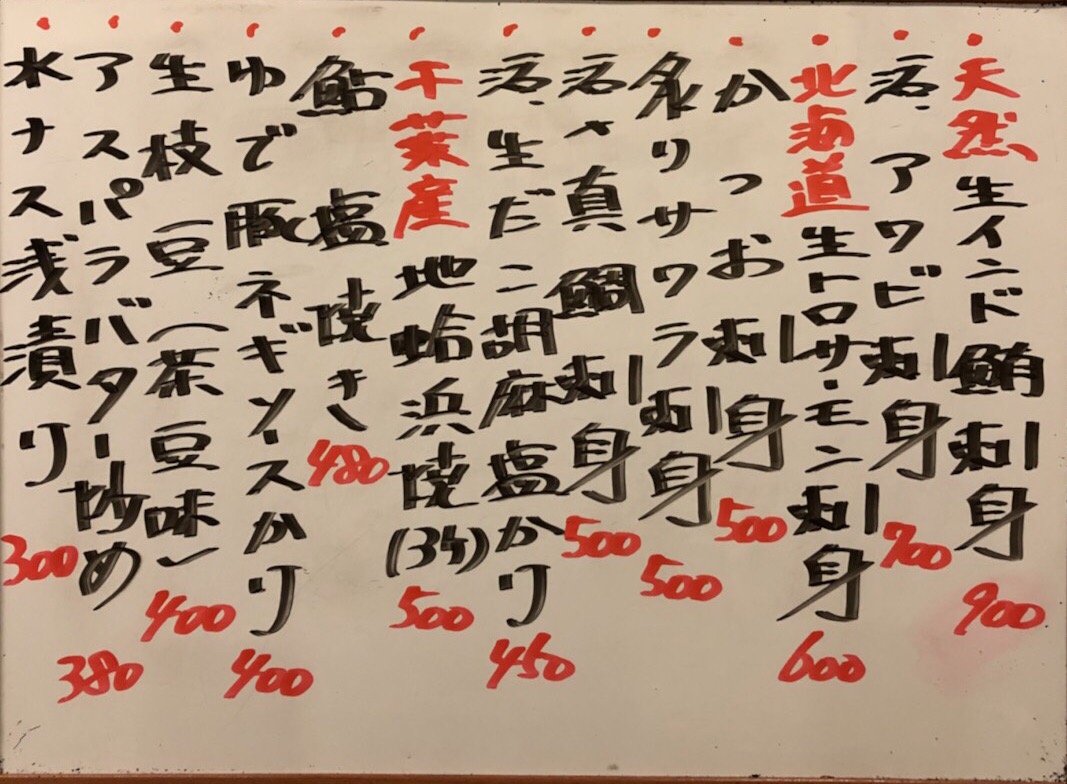 天然生インド鮪刺身 900
活〆アワビ刺身 700
北海道生トロサーモン刺身 600
かつお刺身 500
炙りサワラ刺身 500
活〆真鯛刺身 500
活〆生だこ胡麻塩かり 450
千葉産地蛤浜焼(3ケ) 500
鮎塩焼き 480
ゆで豚ネギソースかり 400
生枝豆(茶豆味) 400
アスパラバター炒め 380
水ナス浅漬り 300